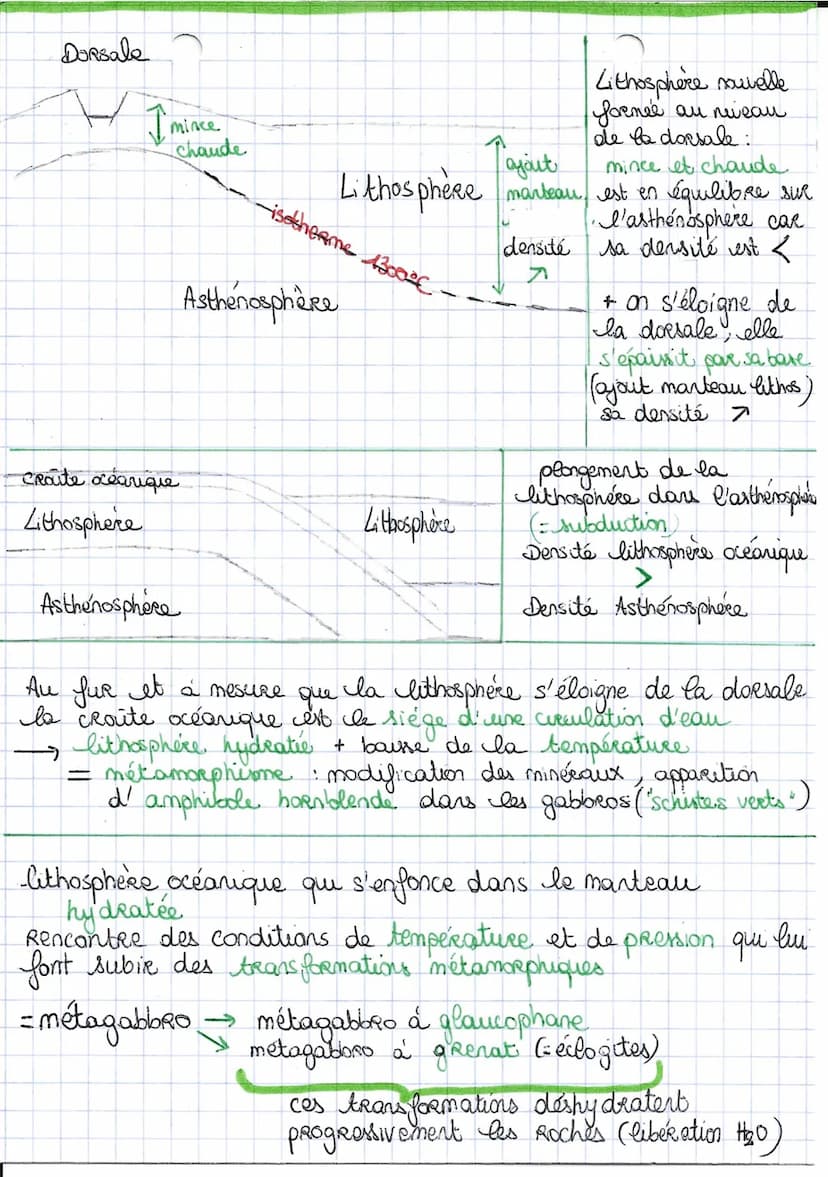 Dorsale
mince
chaude
Lithosphère
isotherme 1300°C
Asthénosphère
ajout
manteau
densité
↗
Lithosphère nouvelle
formée au niveau
de la dorsale :
mince et chaude
est en équilibre sur
l'asthénosphère car
sa densité est <
+ on s'éloigne de
la dorsale, elle
s'épaissit par sa base
(ajout manteau lithos)
sa densité ↗
croûte océanique
Lithosphère
Lithosphère
Asthénosphère
plongement de la
lithosphère dans l'asthénosphère
(= subduction)
Densité lithosphère océanique
>
Densité Asthénosphère
Au fur et à mesure que la lithosphère s'éloigne de la dorsale
la croûte océanique est le siége d'une circulation d'eau
→ lithosphère hydratée + baisse de la température
= métamorphisme : modification des minéraux, apparition
d'amphibole hornblende dans les gabbros ("schistes verts")
lithosphère océanique qui s'enfonce dans le manteau
hydratée
Rencontre des conditions de température et de pression qui lui
font subir des transformations métamorphiques
= métagabbro → métagabbro à glaucophane
↘ métagabbro à grenat (= éclogites)
ces transformations déshydratent
progressivement les roches (libération H2O)